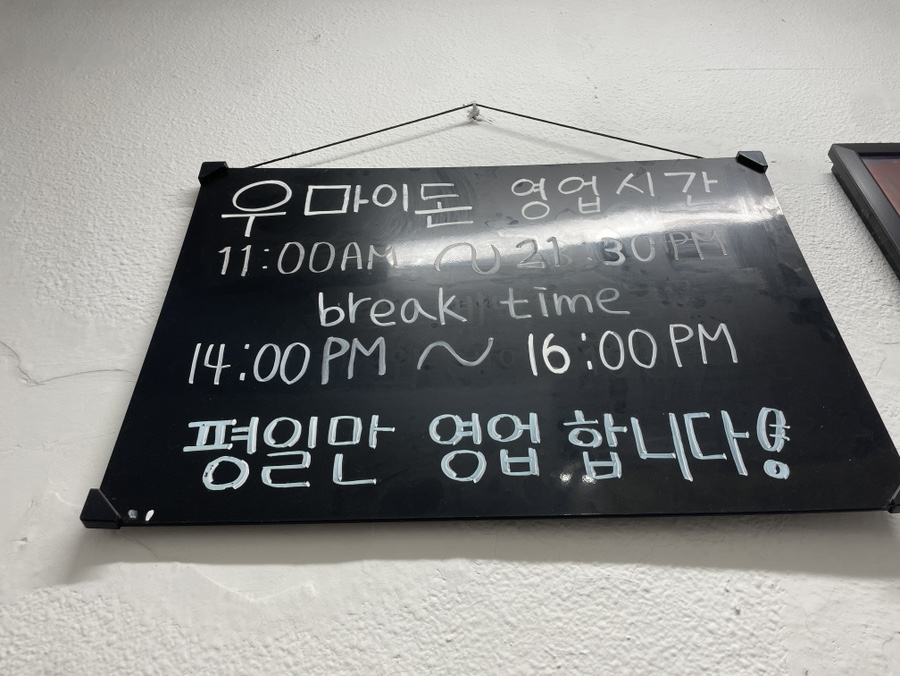 우마이돈 영업시간
11:00AM ~ 21:30PM
break time
14:00PM ~ 16:00PM
평일만 영업 합니다!